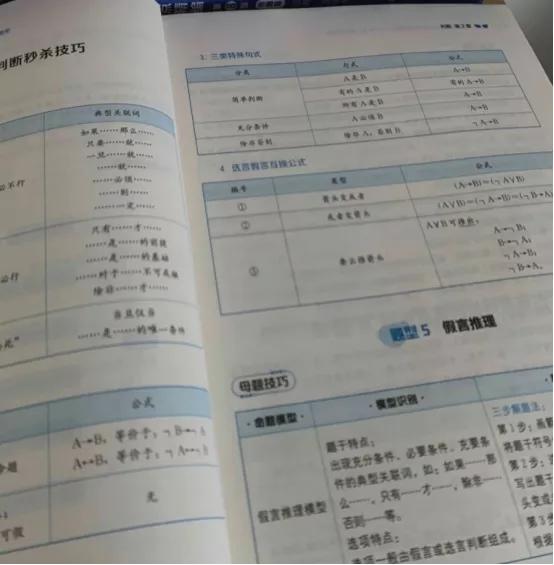 判断秒杀技巧
典型关联词
如果……那么……
只要……就……
一旦……就……
……就……
……必须……
……则……
……一定……
只有……才……
……是……的前提
……是……的基础
……对于……不可或缺
除非……才……
当且仅当
……是……的唯一条件
公式
A→B,等价于:¬B→¬A
A↔B,等价于:¬A↔¬B
无
可假
3. 三类特殊句式
分类
句式
公式
简单判断
A是B
A→B
有的A是B
有的A→B
所有A是B
A→B
充分条件
A必须B
A→B
除非否则
除非A,否则B
¬A→B
4. 选言假言互换公式
编号
类型
公式
①
箭头变或者
(A→B)=(¬A∨B)
②
或者变箭头
(A∨B)=(¬A→B)=(¬B→A)
③
A∀B可推出:
A→¬B;
B→¬A;
¬A→B;
¬B→A。
5 假言推理
母题技巧
命题模型
模型识别
假言推理模型
题干特点:
出现充分条件、必要条件、充要条
件的典型关联词,如:如果……那
么……,只有……才……,除非……
否则……等。
选项特点:
选项一般由假言或选言判断组成。
三步解题法:
第1步:画
将题干符号
第2步:
写出题
头变或
第3步
根据